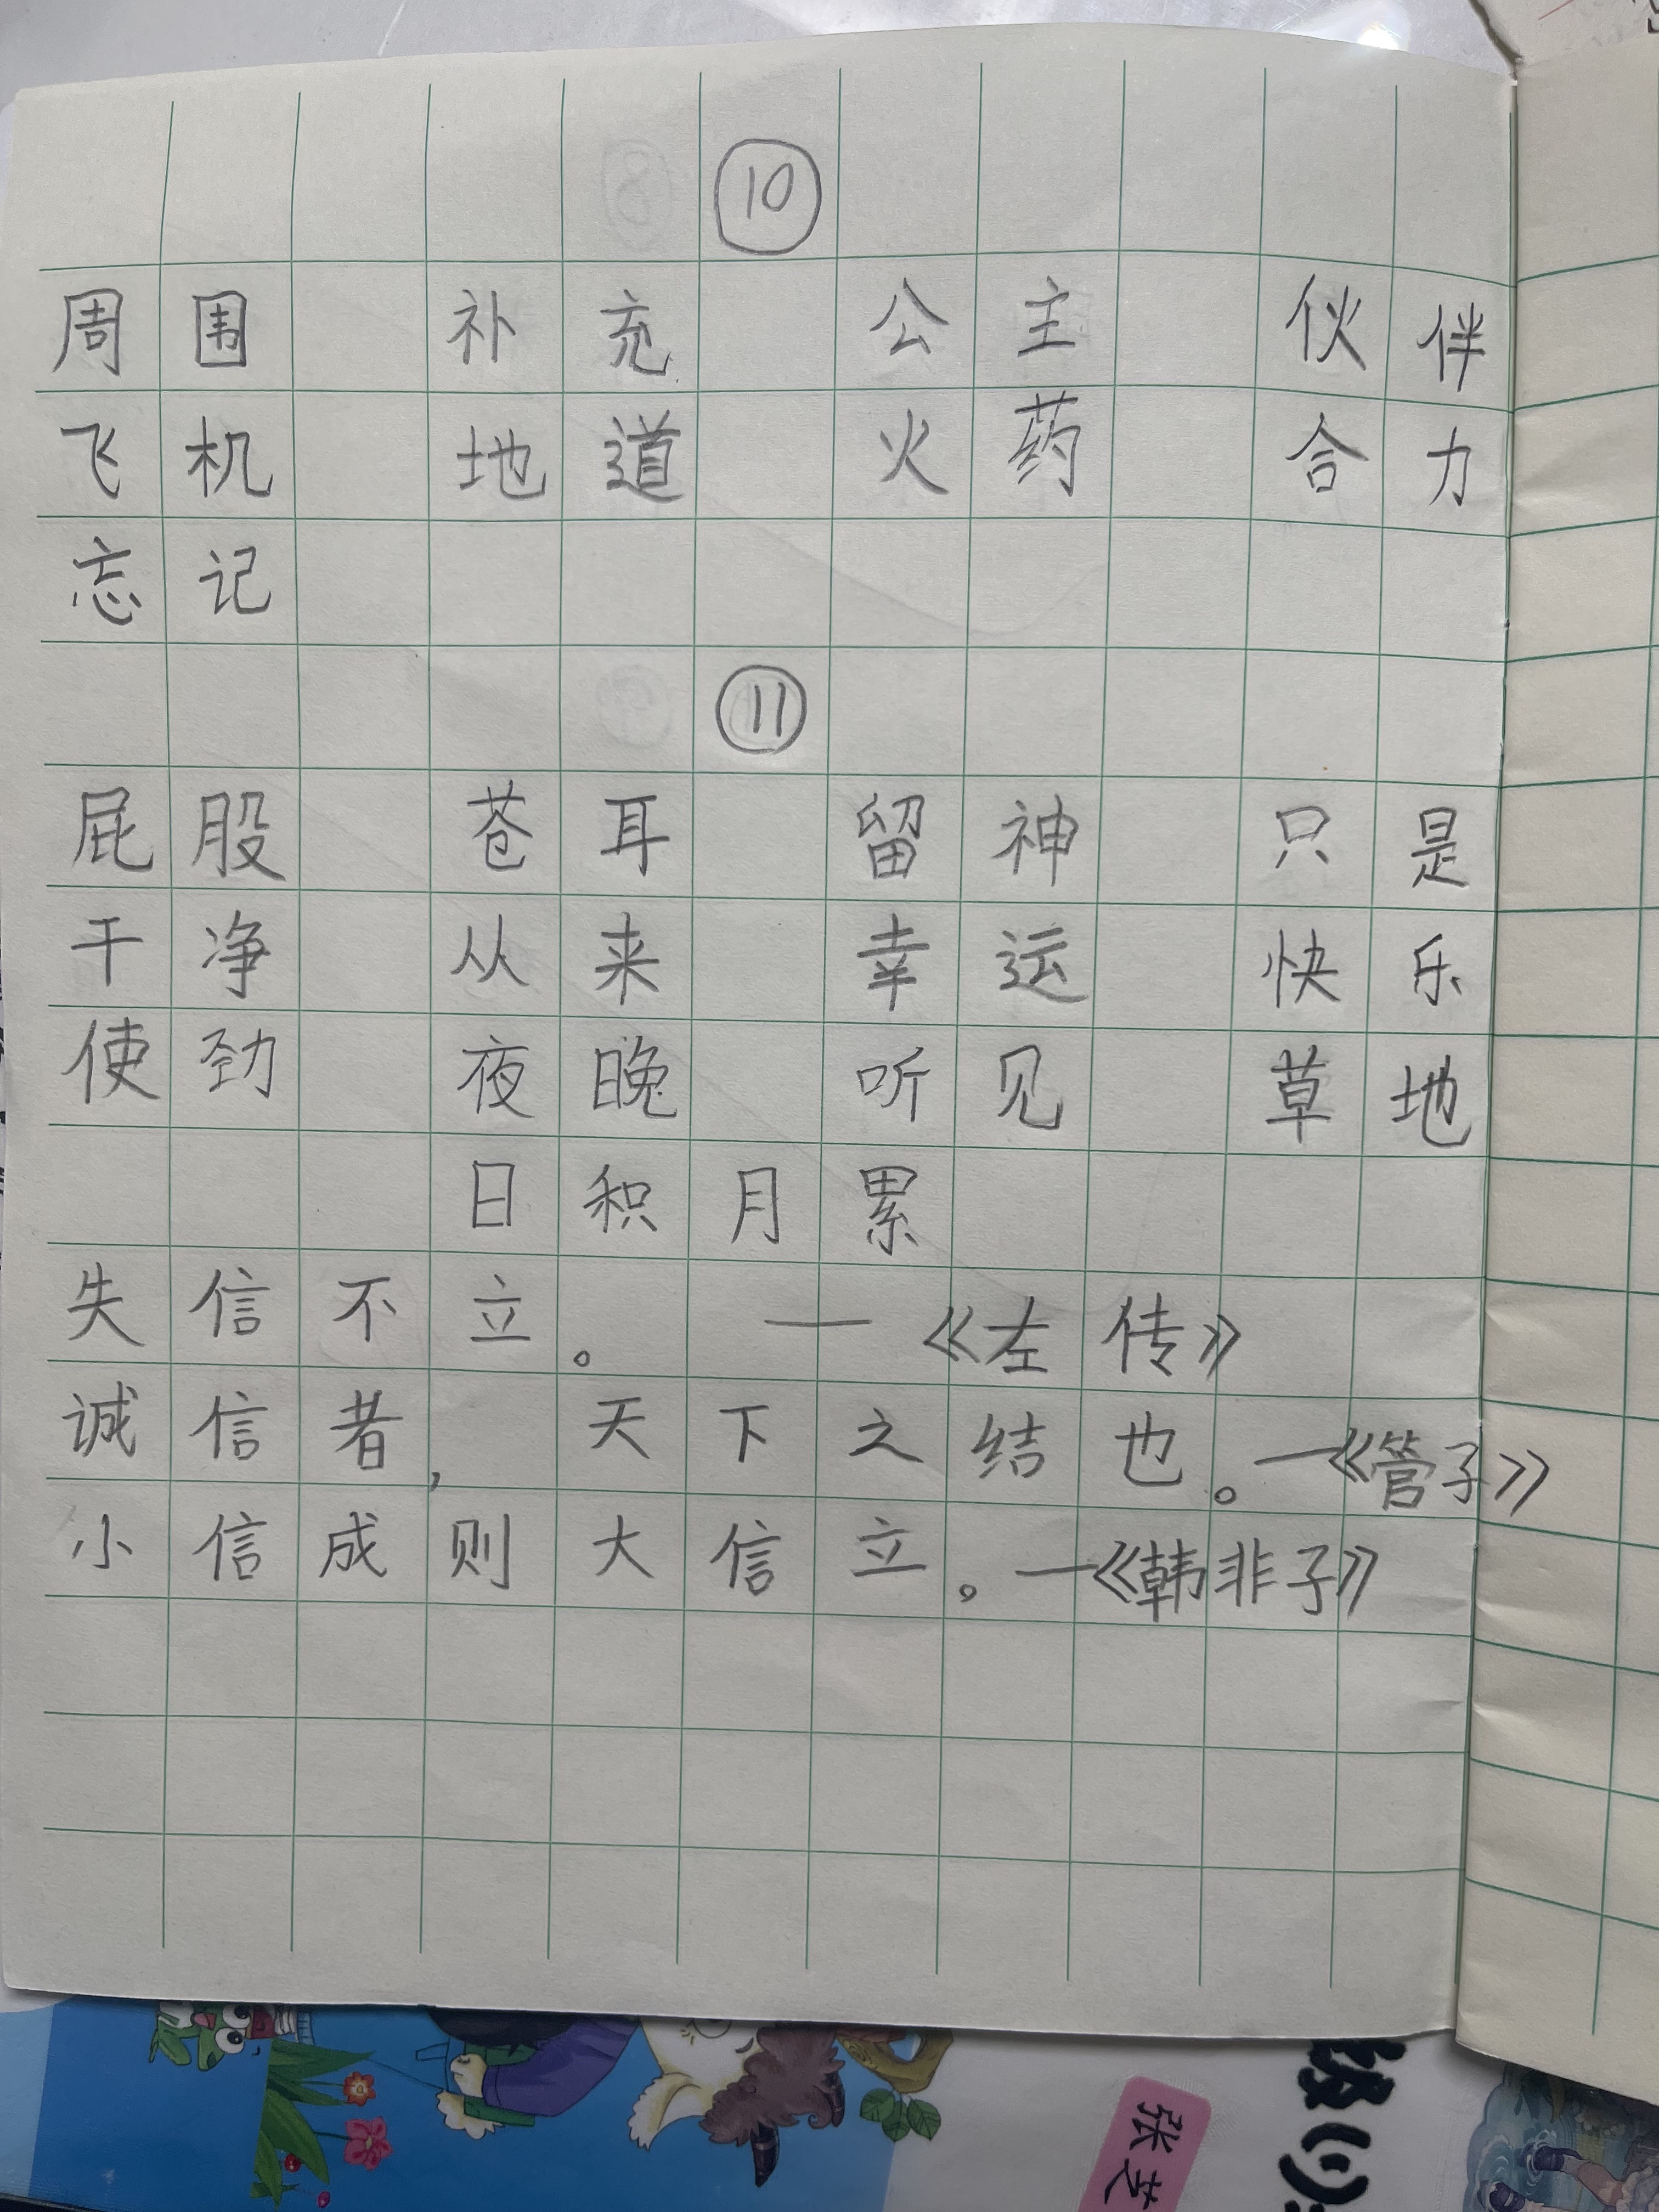 ⑩
周围 补充 公主 伙伴
飞机 地道 火药 合力
忘记
⑪
屁股 苍耳 留神 只是
干净 从来 幸运 快乐
使劲 夜晚 听见 草地
日积月累
失信不立。 —《左传》
诚信者, 天下之结也。—《管子》
小信成则大信立。—《韩非子》
级(1)
张艺